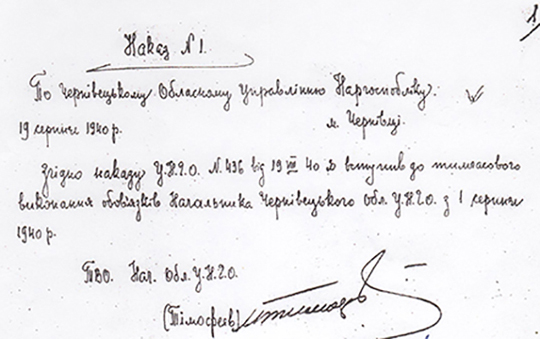 1
Наказ N 1.
По Чернівецькому Обласному Управлінню Наргоспобліку.
19 серпня 1940 р. м. Чернівці.
Згідно наказу У.Н.Г.О. N. 436 від 19 VII 40 я вступив до тимчасового
виконання обов'язків Начальника Чернівецького Обл. У.Н.Г.О. з 1 серпня
1940 р.
ТВО. Нач. Обл. У.Н.Г.О.
(Тімофеев)